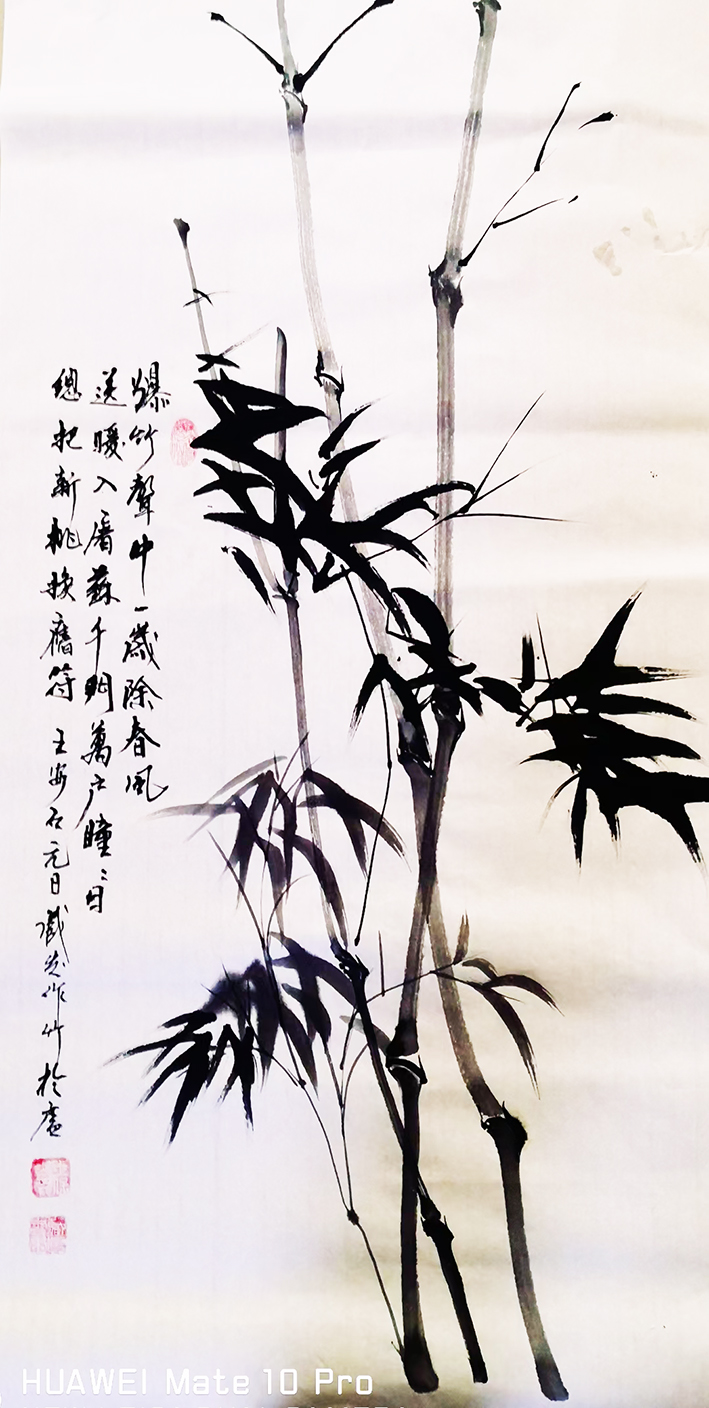 爆竹聲中一歲除春風
送暖入屠蘇千門萬户瞳〻日
總把新桃換舊符 王安石元日 作竹於
HUAWEI Mate 10 Pro